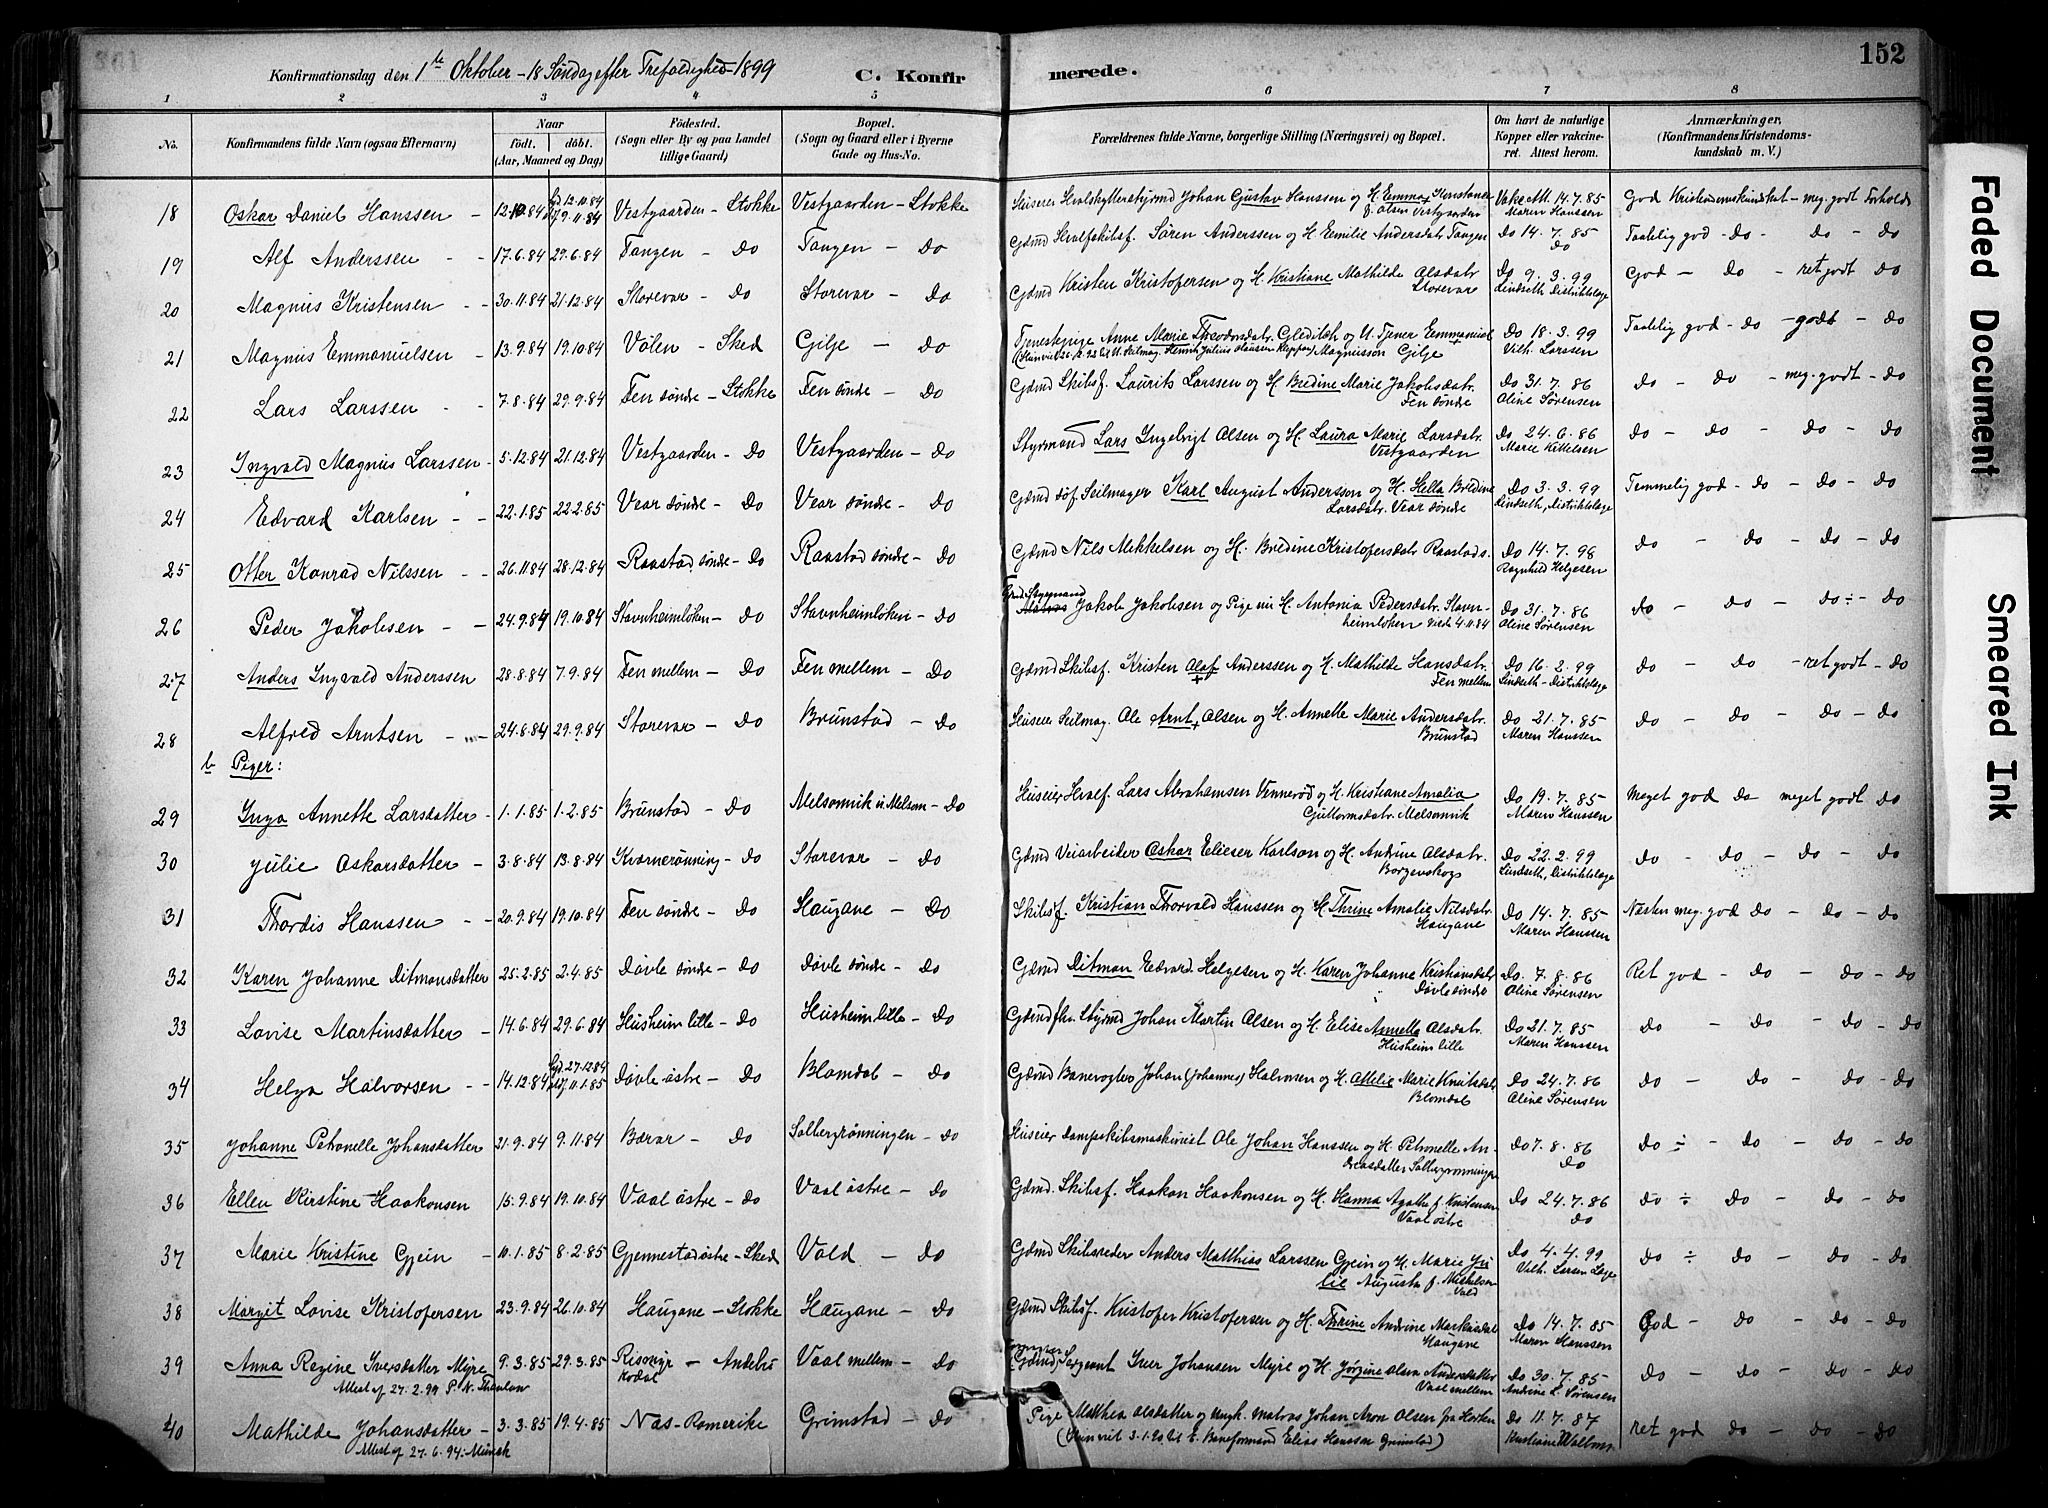 152
Konfirmationsdag den 1ste Oktober - 18 Søndag efter Trefoldighed 1899 C. Konfirmerede.
1 2 3 4 5 6 7 8
No. Konfirmandens fulde Navn (ogsaa Efternavn) Naar født. døbt. (Aar, Maaned og Dag) Fødested. (Sogn eller By og paa Landet tillige Gaard) Bopæl. (Sogn og Gaard eller i Byerne Gade og Hus-No. Forældrenes fulde Navne, borgerlige Stilling (Næringsvei) og Bopæl. Om havt de naturlige Kopper eller vakcineret. Attest herom. Anmærkninger, (Konfirmandens Kristendomskundskab m. V.)
18 Oskar Daniel Hanssen 12.10.84 12.10.84 9.11.84 Vestgaarden - Stokke Vestgaarden - Stokke Huseier Johan Gustav Hanssen og H. Emma Konstance f. Olsen Vestgaarden Vakc. Att. 14.7.85 Maren Hanssen God Kristendomskundskab - meg. godt Forhold
19 Alf Anderssen 17.6.84 29.6.84 Tangen - do Tangen - do Gdmd Hvalfskibsf. Søren Anderssen og H. Emilie Andersdatr. Tangen do 14.7.85 do Taalelig god - do - do - do
20 Magnus Kristensen 30.11.84 21.12.84 Storevar - do Storevar - do Gdmd Kristen Kristofersen og H. Kristiane Mathilde Olsdatr. Storevar do 9.3.99 Lindseth Distriktslæge God - do - ret godt do
21 Magnus Emmanuelsen 13.9.84 19.10.84 Vølen - Sked Gilje - do Tjenestepige Anne Marie Theodorsdatr. Gleditsch og U. Tjener Emmanuel Magnusson Gilje do 18.3.99 Vilh. Larssen Taalelig god - do - godt - do
22 Lars Larssen 7.8.84 29.9.84 Fen søndre - Stokke Fen søndre - do Gdmd Skibsf. Laurits Larssen og H. Bredine Marie Jakobsdatr. Fen søndre do 31.7.86 Oline Sørensen do - do - meg. godt - do
23 Ingvald Magnus Larssen 5.12.84 21.12.84 Vestgaarden - do Vestgaarden - do Styrmand Lars Ingebrigt Olsen og H. Laura Marie Larsdatr. Vestgaarden do 24.6.86 Marie Kittelsen do - do - do - do
24 Edvard Karlsen 22.1.85 22.2.85 Vear søndre - do Vear søndre - do Gdmd Seilmager Karl August Andersson og H. Hella Bredine Larsdatr. Vear søndre do 3.3.99 Lindseth, Distriktslæge Temmelig god - do - do - do
25 Otter Konrad Nilssen 26.11.84 28.12.84 Raastad søndre - do Raastad søndre - do Gdmd Nils Mikkelsen og H. Bredine Kristofersdatr. Raastad s. do 14.7.98 Ragnhild Helgesen do - do - do - do
26 Peder Jakobsen 24.9.84 19.10.84 Stavnheimløken - do Stavnheimløken - do Gmd Styrmand Matros Jakob Jakobsen og Pige nu H. Antonia Pedersdatr. Stavnheimløken viede 4.11.84 do 31.7.86 Oline Sørensen do - do - do ÷ do
27 Anders Ingvald Anderssen 28.8.84 7.9.84 Fen mellem - do Fen mellem - do Gdmd Skibsf. Kristen Olaf Anderssen og H. Mathilde Hansdatr. Fen mellem do 16.2.99 Lindseth - Distriktslæge do - do - ret godt - do
28 Alfred Arntsen 24.8.84 29.9.84 Storevar - do Brunstad - do Huseier Seilmag. Ole Arnt Olsen og H. Annette Marie Andersdatr. Brunstad do 21.7.85 Maren Hanssen do - do - do - do
b Piger:
29 Inga Annette Larsdatter 1.1.85 1.2.85 Brunstad - do Melsomvik u. Melsom - do Huseier Hvalf. Lars Abrahamsen Vennerød og H. Kristiane Amalia Guttormsdatr. Melsomvik do 19.7.85 Maren Hanssen Meget god do - meget godt do
30 Julie Oskarsdatter 3.8.84 13.8.84 Kværnerønning - do Storevar - do Gdmd Veiarbeider Oskar Elieser Karlson og H. Andrine Olsdatr. Borgenskogs do 22.2.99 Lindseth, Distriktslæge do - do - do - do
31 Thordis Hanssen 20.9.84 19.10.84 Fen søndre - do Haugane - do Skibsf. Kristian Thorvald Hanssen og H. Thrine Amalie Nilsdatr. Haugane do 14.7.85 Maren Hanssen Næsten meg. god do - do - do
32 Karen Johanne Ditmansdatter 25.2.85 2.4.85 Døvle søndre - do Døvle søndre - do Gdmd Ditman Edvard Helgesen og H. Karen Johanne Kristiansdatr. Døvle søndre do. 7.8.86 Oline Sørensen Ret god - do - do - do
33 Lovise Martinsdatter 14.6.84 29.6.84 Husheim lille - do Husheim lille - do Gdmd fhv. Styrmd Johan Martin Olsen og H. Elise Annette Olsdatr. Husheim lille do 21.7.85 Maren Hanssen do - do - do - do
34 Helga Halvorsen 14.12.84 27.12.84 11.1.85 Døvle østre - do Blomdal - do Gdmd Banevogter Johan (Johannes) Halvorsen og H. Ottelie Marie Knutsdatr. Blomdal do 24.7.86 Oline Sørensen do - do - do - do
35 Johanne Petronelle Johansdatter 21.9.84 9.11.84 Bærar - do Solbergrønningen - do Huseier Dampskibsmaskinist Ole Johan Hanssen og H. Petronelle Andreasdatter Solbergrønningen do 7.8.86 do do ÷ - do - do - do
36 Ellen Kirstine Haakonsen 15.9.84 19.10.84 Vaal østre - do Vaal østre - do Gdmd. Skibsf. Haakon Haakonsen og H. Hanna Agathe f. Kristensen Vaal østre do 24.7.86 do do ÷ do - do - do
37 Marie Kristine Gjein 10.1.85 8.2.85 Gjennestad østre - Sked Vald - do Gdmd Skibsreder Anders Matthias Larssen Gjein og H. Marie Julie Augusta f. Mikkelsen Vald do 4.4.99 Vilh. Larsen Læge do ÷ do - do - do
38 Margit Lovise Kristofersen 23.9.84 26.10.84 Haugane - Stokke Haugane - do Gdmd Skibsf. Kristofer Kristofersen og H. Thrine Andrine Markusdatr. Haugane do 14.7.85 Maren Hanssen God - do - do - do
39 Anna Regine Iversdatter Myre 9.3.85 29.3.85 Kodal - Andebu Vaal mellem - do Gdmd Sergeant Iver Johansen Myre og H. Jørgine Olava Andersdatter Vaal mellem do 30.7.85 Andrine L. Sørensen do - do - do - do
Attest af 27.2.99 P. N. Thaulow
40 Mathilde Johansdatter 3.3.85 19.4.85 Næs - Romerike Grimstad - do Pige Matthea Olsdatter og Ungk. Matros Johan Aron Olsen fra Horten do 11.7.87 ret god do - do - do
Attest af 27.6.94. Munch
Faded Document
Smeared Ink